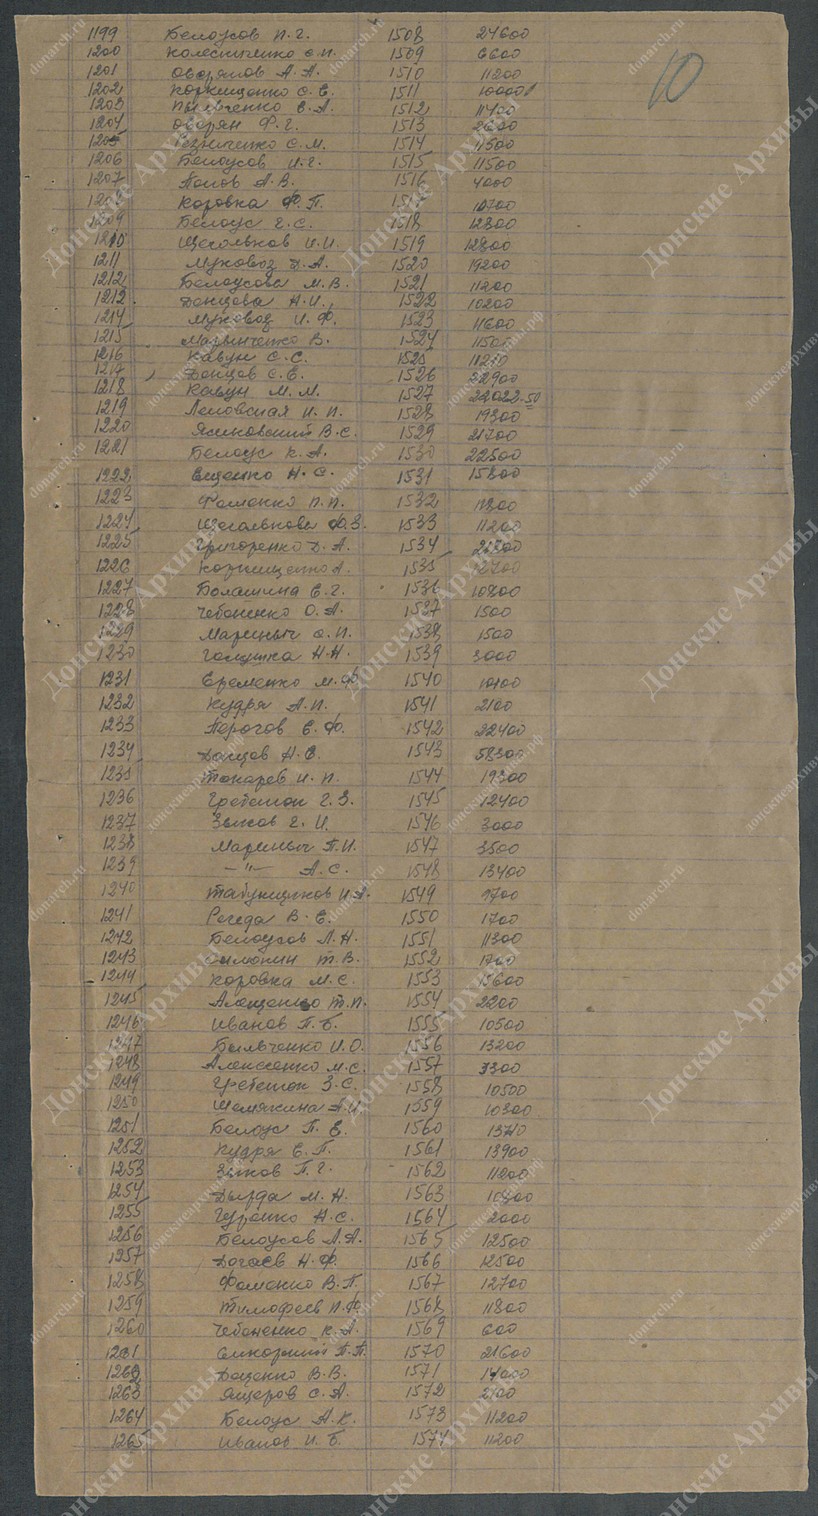 10
1199 Белоусов П.Г. 1508 24600
1200 Колесниченко С.П. 1509 6600
1201 Оверянов А.А. 1510 11200
1202 С.Е. 1511 10000
1203 Е.А. 1512 11400
1204 Оверян Ф.Г. 1513
1205 Резниченко С.М. 1514 11500
1206 Белоусов И.Г. 1515 11500
1207 Попов А.В. 1516 4000
1208 Коровка Ф.П. 1517 10700
1209 Белоус Г.С. 1518 12800
1210 Щегольков И.И. 1519 12800
1211 Муковоз Д.А. 1520 19200
1212 Белоусова М.В. 1521 11200
1212. Донцова Н.И. 1522 10200
1214 Муковоз И.Ф. 1523 11600
1215 Марынченко В. 1524 11500
1216 Кавун С.С. 1525
1217 Донцов С.Е. 1526 22900
1218 Кавун М.М. 1527 22022-50
1219 И.П. 1528 19300
1220 Ясиновский В.С. 1529 21700
1221 Белоус К.А. 1530 22500
1222 Ещенко Н.С. 1531 15800
1223 Фоменко П.П. 1532 11800
1224 Щегольнова Ф.З. 1533 11200
1225 Григоренко Д.А. 1534
1226 А. 1535 12700
1227 Е.Г. 1536 10800
1228 Чебоненко О.А. 1537 1500
1229 Мариныч С.П. 1538 1500
1230 Голушка Н.Н. 1539 3000
1231 Еременко М.Ф. 1540 10100
1232 Кудря А.П. 1541 2100
1233 Пирогов Е.Ф. 1542 22400
1234 Донцов Н.С. 1543 58300
1235 Токарев И.П. 1544 19300
1236 Гребенюк Г.З. 1545 12400
1237 Зыков Г.И. 1546 3000
1238 Мариныч П.И. 1547 3500
1239 —"— А.С. 1548 13400
1240 Табунщиков И.А. 1549 1700
1241 Регеда В.Е. 1550 1700
1242 Белоусов Л.Н. 1551 11300
1243 Т.В. 1552 1700
1244 Коровка М.С. 1553 15600
1245 Алещенко Т.П. 1554 2200
1246 Иванов П.Б. 1555 10500
1247 Бильченко И.О. 1556 13200
1248 Алексеенко М.С. 1557 3300
1249 Гребенюк З.С. 1558 10500
1250 Шемякина А.И. 1559 10300
1251 Белоус П.Е. 1560
1252 Кудря Е.П. 1561 13900
1253 Зыков П.Г. 1562 11200
1254 Дырда М.Н. 1563
1255 Гуренко Н.С. 1564 2000
1256 Белоусов Л.А. 1565 12500
1257 Догаев Н.Ф. 1566 12500
1258 Фоменко В.П. 1567 12700
1259 Тимофеев П.Ф. 1568 11800
1260 Чебоненко К.А. 1569 600
1261 П.П. 1570 21600
1262 Доценко В.В. 1571 14000
1263 Ящеров С.А. 1572 2100
1264 Белоус А.К. 1573 11200
1265 Иванов И.Б. 1574 11200